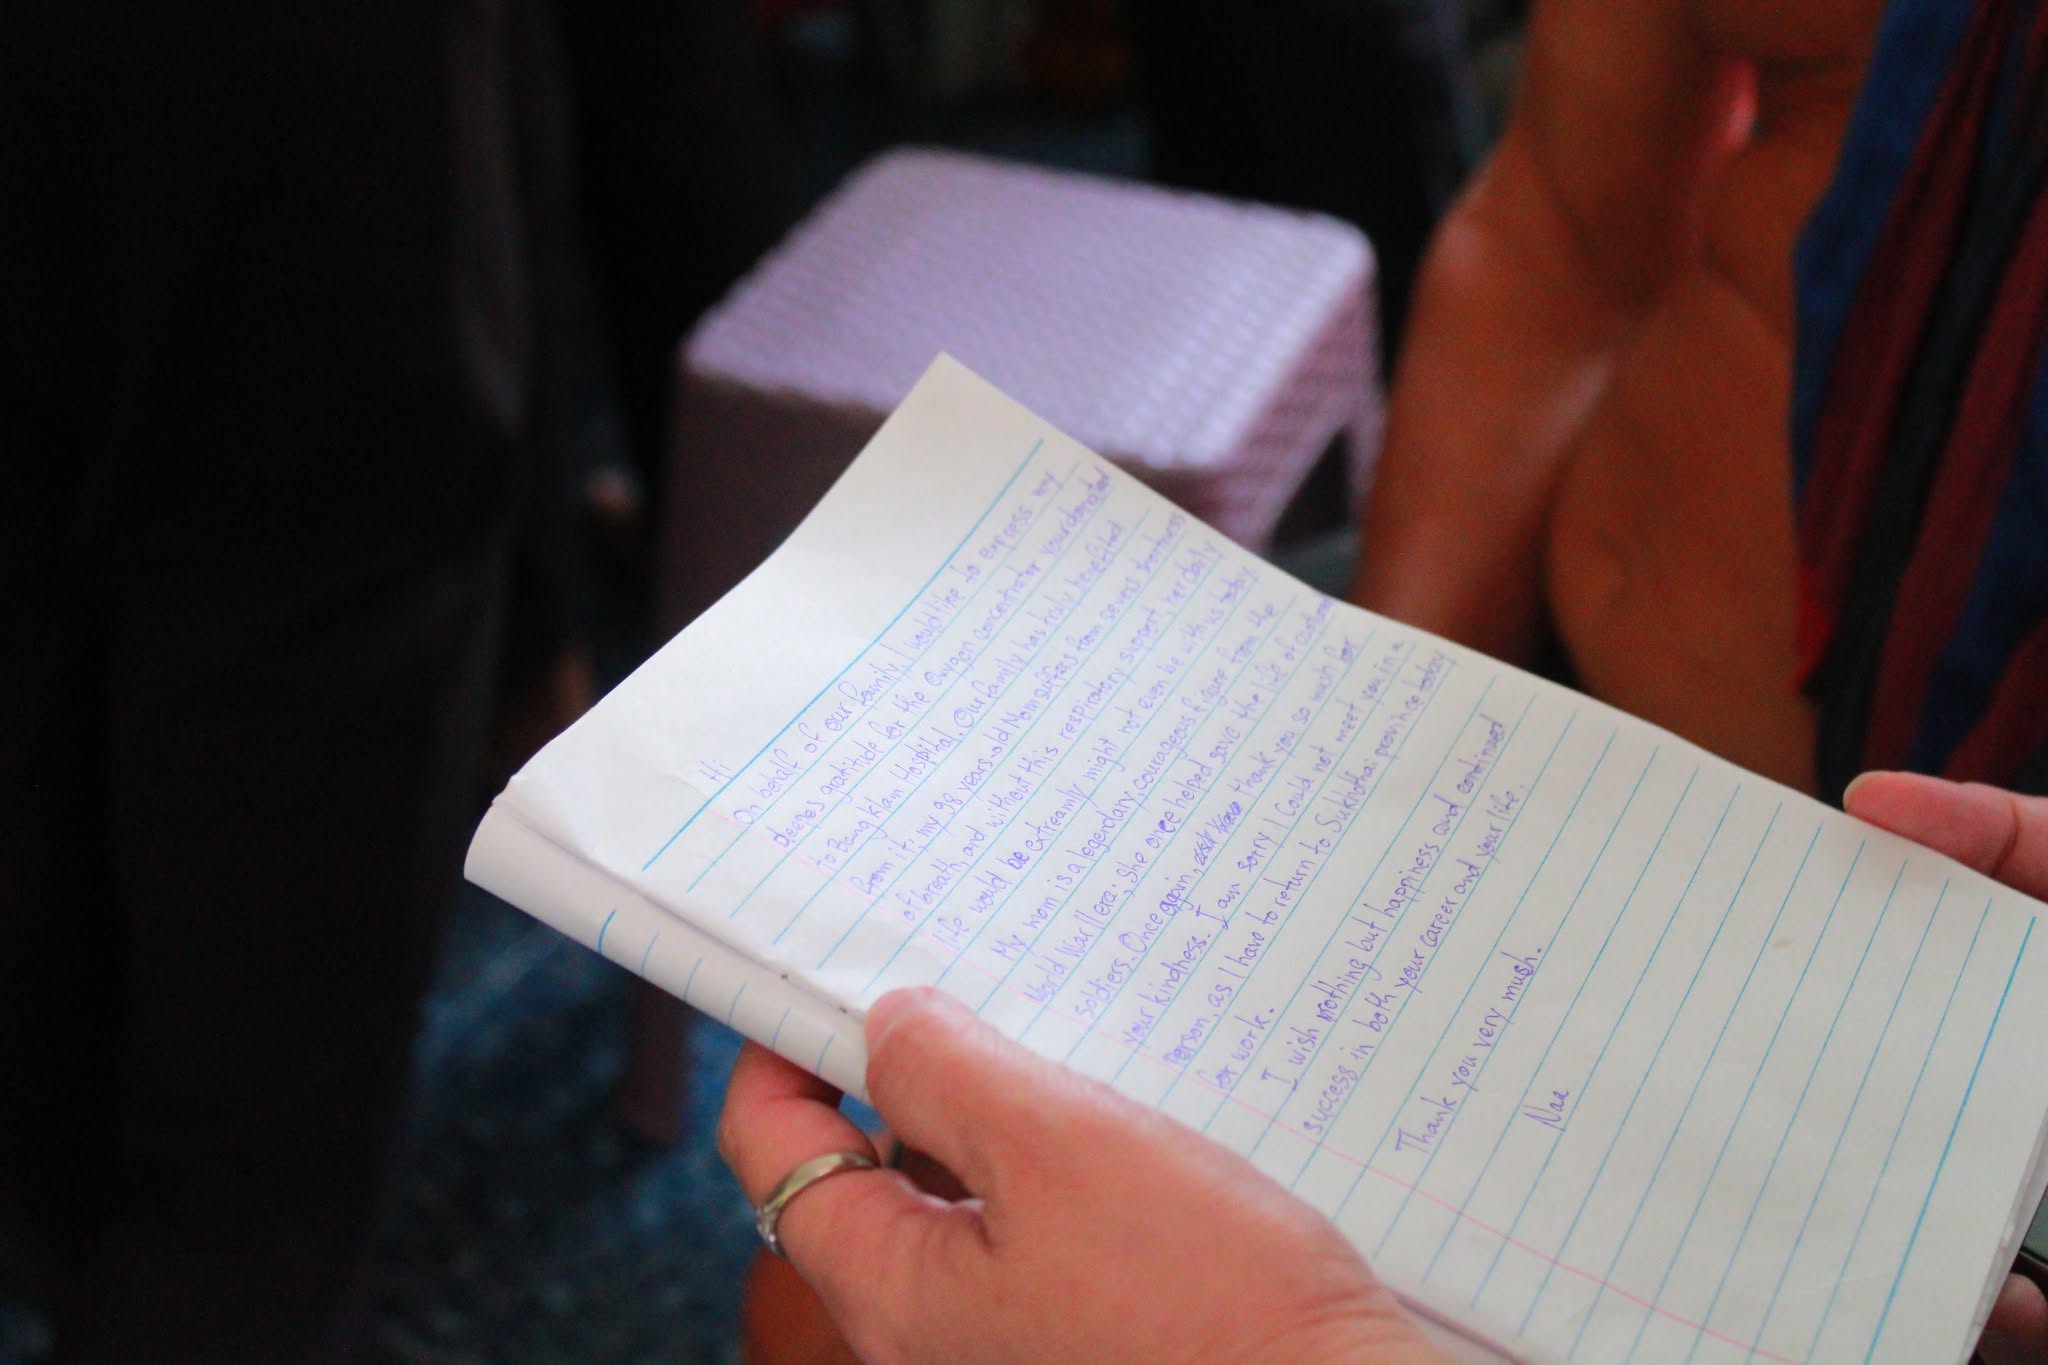 Hi
On behalf of our family, I would like to express my
deepes gratitude for the Oxygen concentrator your donated
to Bang Klam Hospital. Our family has truly benefited
from it; my 98 years-old Mom suffers from severe shortness
of breath, and without this respiratory support, her daily
life would be extreamly might not even be with us today
My mom is a legendary, courageous figure from the
World War II era; she once helped save the life of
soldiers. Once again, thank you so much for
your kindness. I am sorry I could not meet you in a
person, as I have to return to Sukhothai province today
for work.
I wish nothing but happiness and continued
success in both your career and your life.
Thank you very mush.
Nae